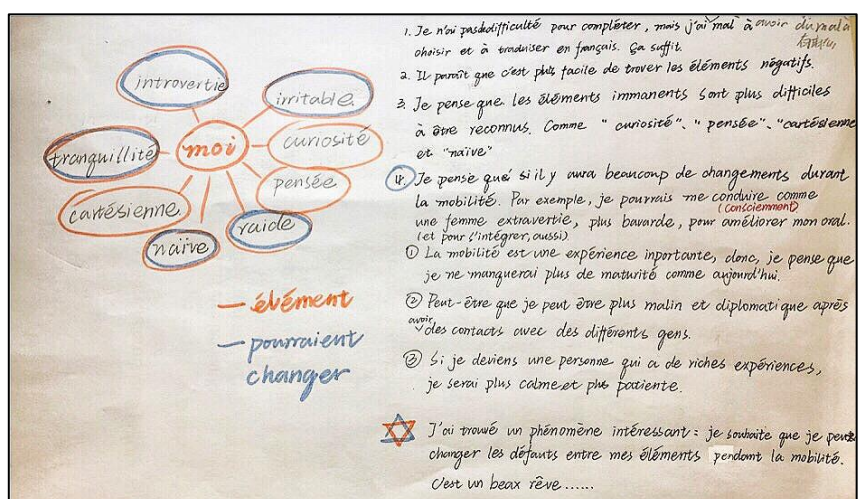 introvertie
irritable
tranquillité
moi
curiosité
cartésienne
pensée
naïve
raide
— élément
— pourraient
changer
1. Je n'ai pas de difficulté pour compléter, mais j'ai mal à avoir du mal à
choisir et à traduiser en français. Ça suffit.
2. Il paraît que c'est plus facile de trover les éléments négatifs.
3. Je pense que les éléments immanents sont plus difficiles
à être reconnus. Comme "curiosité", "pensée", "cartésienne
et "naïve"
4. Je pense que si il y aura beaucoup de changements durant
la mobilité. Par exemple, je pourrais me conduire comme
(consciemment)
une femme extravertie, plus bavarde, pour améliorer mon oral.
(et pour l'intégrer, aussi)
① La mobilité est une expérience inportante, donc, je pense que
je ne manquerai plus de maturité comme aujourd'hui.
② Peut-être que je peut être plus malin et diplomatique après
avoir
des contacts avec des différents gens.
③ Si je deviens une personne qui a de riches expériences,
je serai plus calme et plus patiente.
J'ai trouvé un phénomène intéressant : je souhaite que je peux
changer les défauts entre mes éléments pendant la mobilité.
C'est un beax rêve......